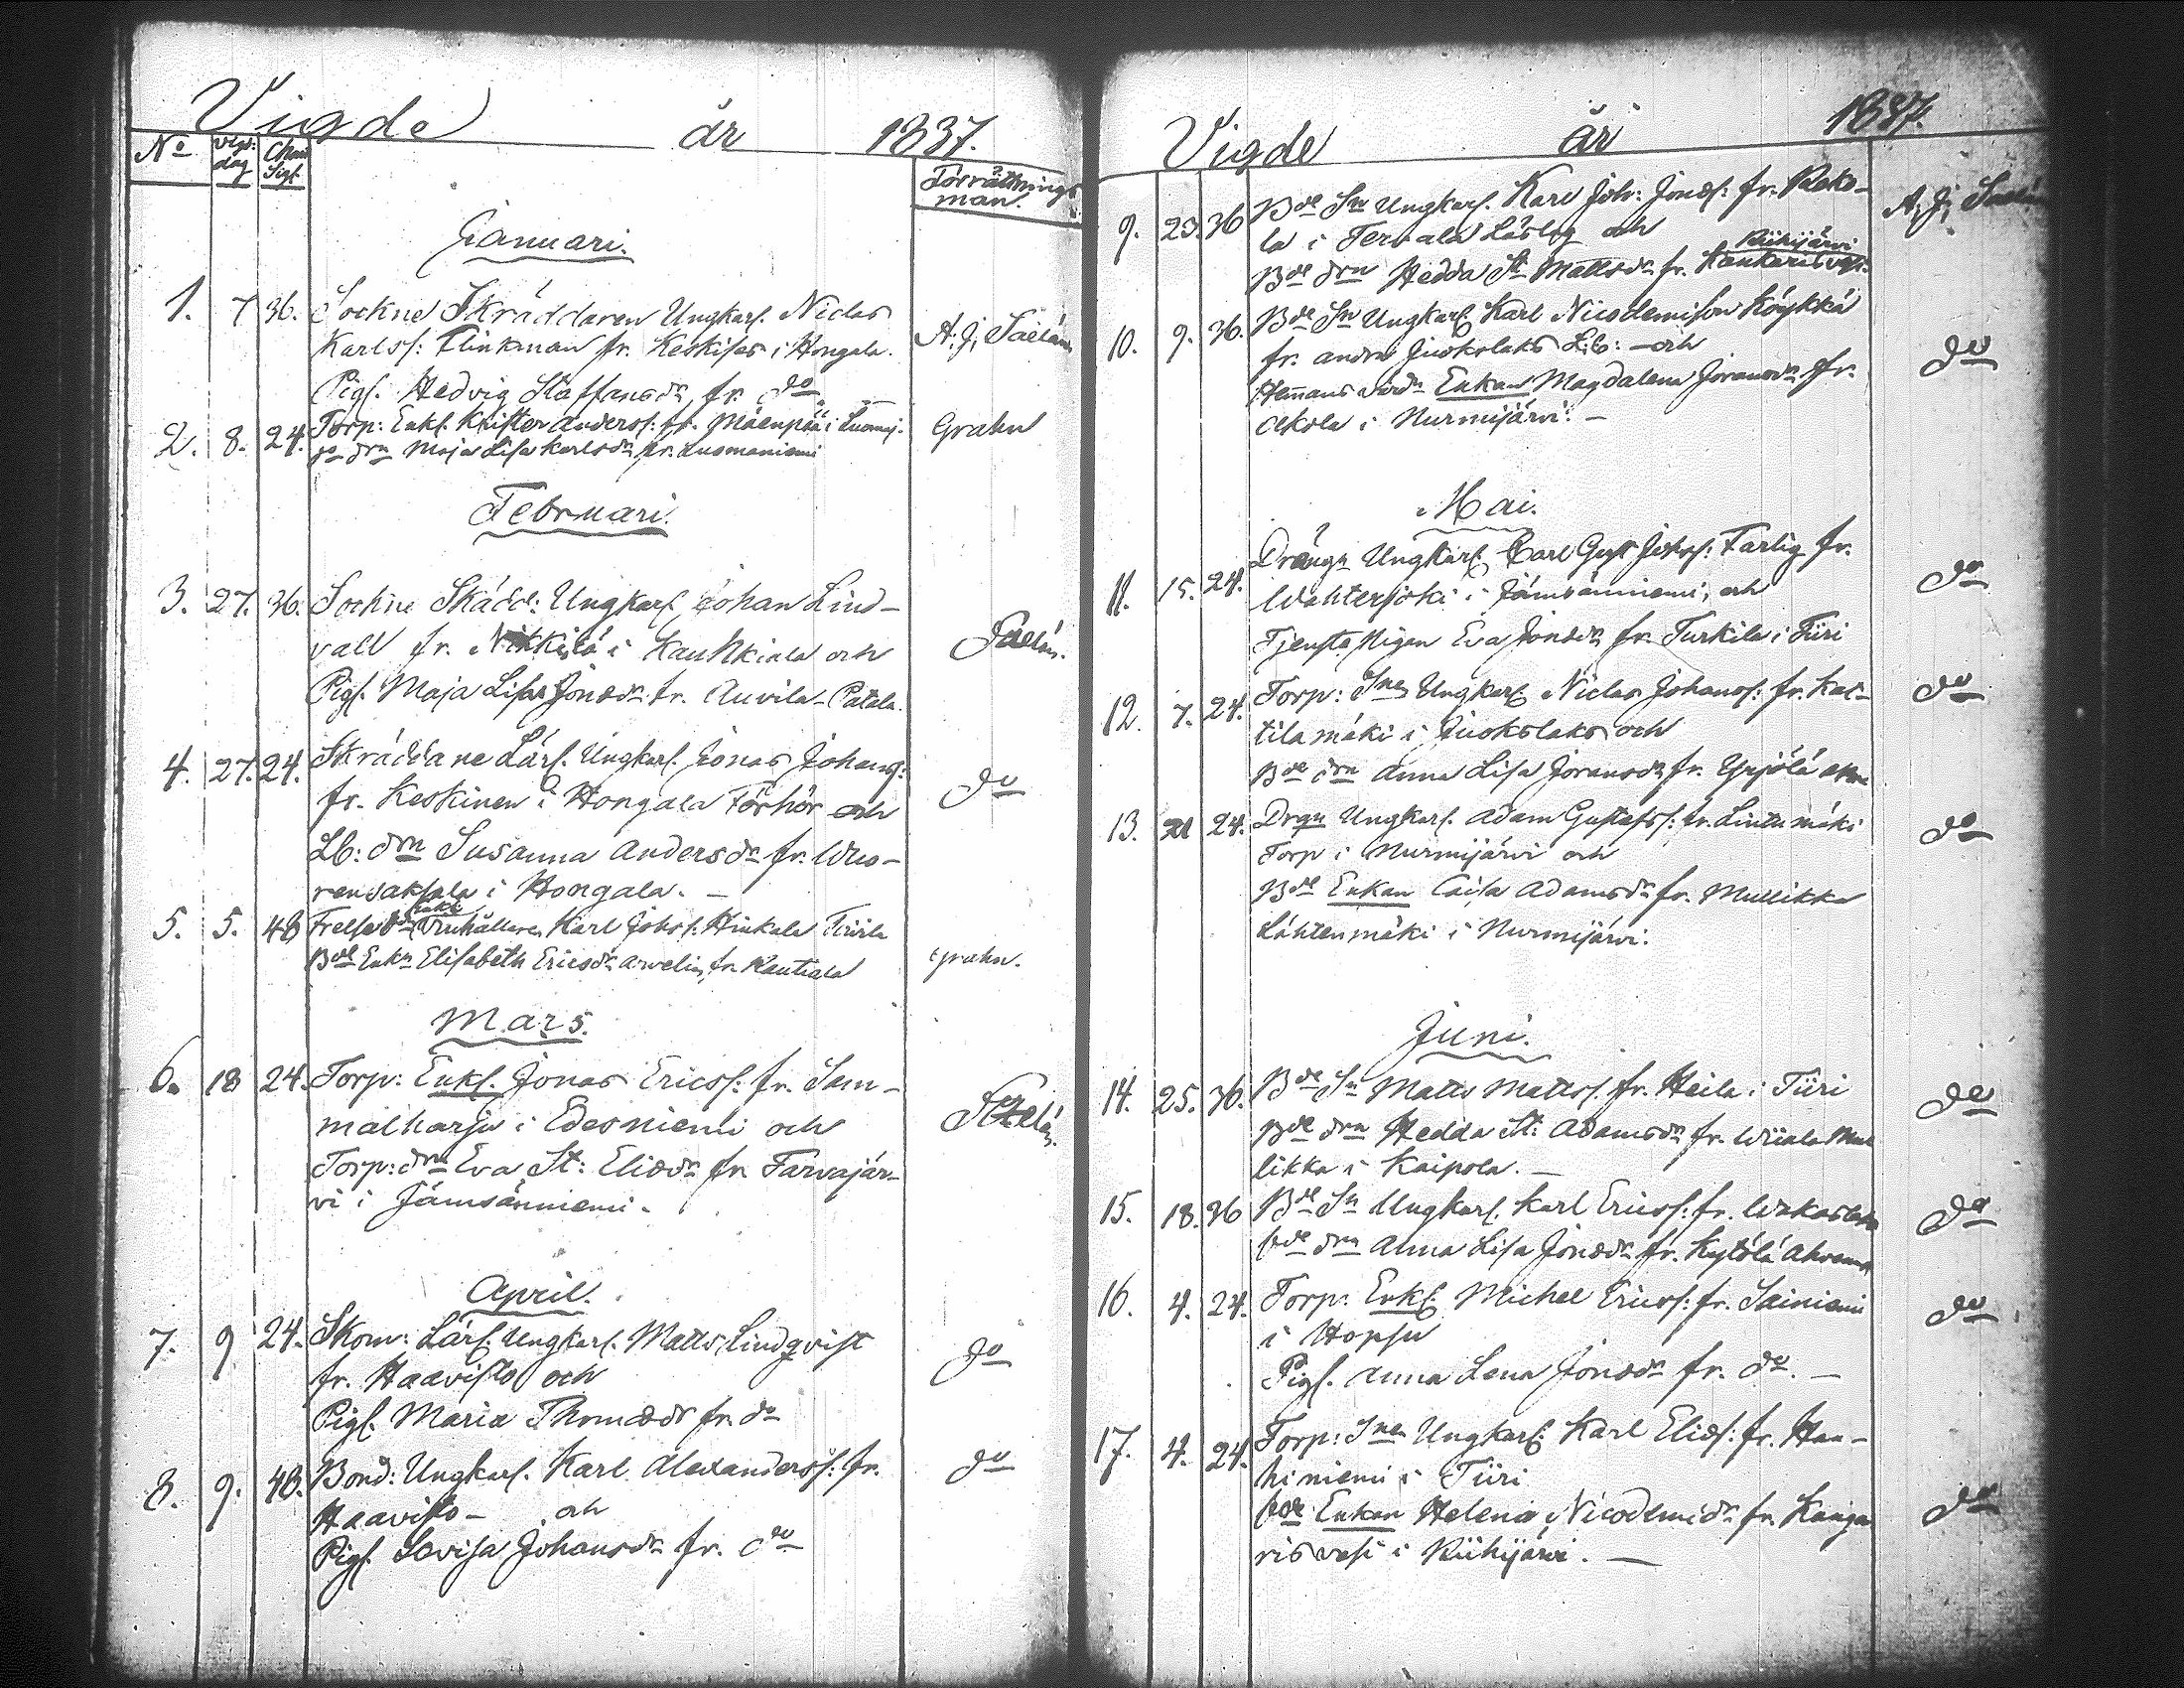 Vigde år 1837.
No Vigs: dag Chart. Sigl. Förrättnings man.
Januari.
1. 7 36. Sockne Skräddaren Ungkarl. Niclas
Karlss: Flinkman fr. Keskises i Hongala. A. J. Saelán
Pigl. Hedvig Staffansdr. fr. do
2. 8. 24. Torp: Enkl. Krister Anderss: fr. Mäenpää i Luomi. Grahn
do drn Maja Lisa Karlsdr fr. Luomaniemi
Februari.
3. 27. 36. Sockne Skädd: Ungkarl. Johan Lind-
vall fr. Nikkilä i Kauhkiala och Saelán.
Pigl. Maja Lisa Jonsdr. fr. Auvila-Patala.
4. 27. 24. Skräddare Lärl. Ungkarl. Jonas Johanss:
fr. Keskinen i Hongala Förhör och do
Lb: drn Susanna Andersdr fr. Wuo-
rensaksala i Hongala. –
5. 5. 48 Frelse Karl Johss. Hinkala Tiirila
Bde Enkn Elisabeth Ericsdr Arvelin, fr. Rautiala Grahn.
Mars.
6. 18 24. Torp: Enkl. Jonas Ericss: fr. Sam-
malharju i Edesniemi och Saelán.
Torp: drn Eva St: Eliaedr fr. Tarvajär-
vi i Jämsänniemi.
April.
7. 9 24. Skom: Lärl. Ungkarl. Matts Lindqvist
fr. Haavisto och do
Pigl. Maria Thomaedr fr. do
8. 9. 48. Bond: Ungkarl. Karl Alexanderss: fr. do
Haavisto – och
Pigl. Lovisa Johansdr fr. do
Vigde år 1837.
9. 23. 36 Bde Sn Ungkarl. Karl Joh: Jonaes: fr. Reko- A. J. Saelán
la i Tervala Läslag och
Riihijärvi
Bde drn Hedda St Mattsdr fr. Kankarisvesi.
10. 9. 36. Bde Sn Ungkarl. Karl Nicodemison Köykkä
fr. andra Juokslaks L:b: – och do
Hemmans Enkan Magdalena Joransdr fr.
Akola i Nurmijärvi. –
Mai.
11. 15. 24. Drängn Ungkarl. Carl Gust Johss: Farlig fr.
Wahterjoki i Jämsänniemi, och do
Tjenste Pigan Eva Jonaedr fr. Turkila i Tiiri
12. 7. 24. Torp: Snen Ungkarl. Niclas Johanss: fr. Kat- do
tilamäki i Juokslaks och
Bde drn Anna Lisa Joransdr fr. Yrjölä
13. 21 24. Drgn Ungkarl. Adam Gustafss: fr. Lintumäki do
Torp i Nurmijärvi och
Bde Enkan Caisa Adamsdr fr. Mullikka
Lähtenmäki i Nurmijärvi.
Juni.
14. 25. 36. Bde Sn Matts Mattss. fr. Heila i Tiiri do
Bde drn Hedda St: Adamsdr fr. Wiiala Mul
likka i Kaipola. –
15. 18. 36 Bde Sn Ungkarl. Karl Ericss: fr. do
bde drn Anna Lisa Jonaedr fr. Kytölä
16. 4. 24. Torp: Enkl. Michel Ericss: fr. Sainiemi do
i Hopsu
Pigl. Anna Lena Jonaedr fr. do. –
17. 4. 24. Torp: Snen Ungkarl. Karl Eliaes: fr. Han-
hiniemi i Tiiri
bde Enkan Helena Nicodemidr fr. Kanga do
risvesi i Riihijärvi. –